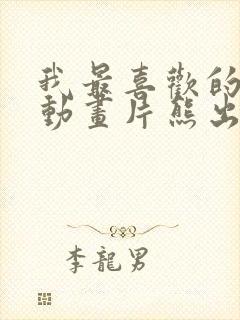 我最喜歡的
動畫片熊出
李龍男